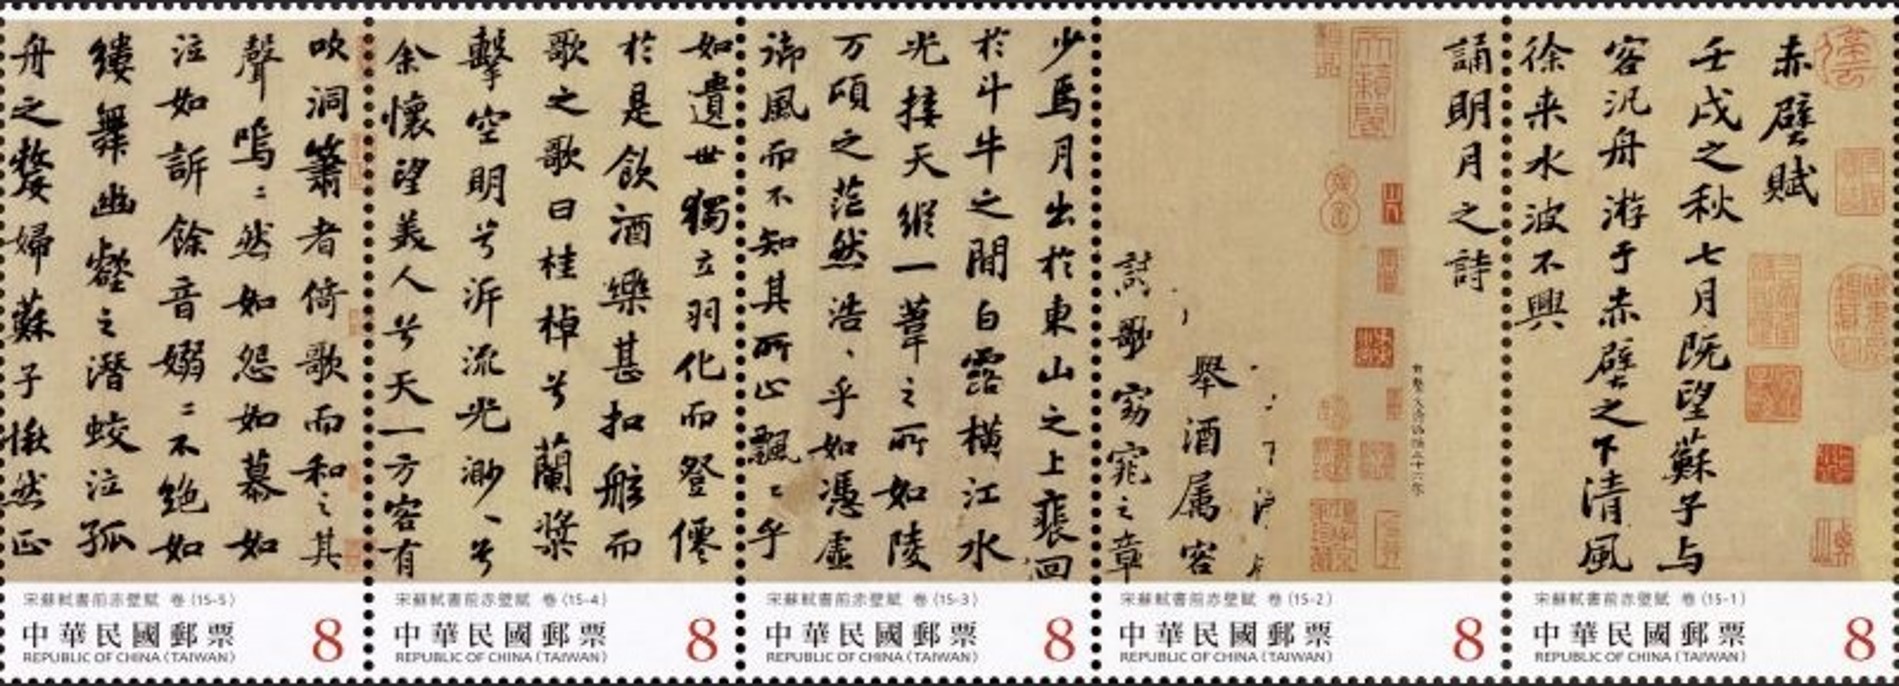 赤壁賦
壬戌之秋七月既望蘇子与
客汎舟游于赤壁之下清風
徐来水波不興
誦明月之詩
舉酒属客
歌窈窕之章
少焉月出於東山之上裵回
於斗牛之間白露橫江水
光接天縱一葦之所如陵
万頃之茫然浩、乎如憑虛
御風而不知其所止飄〻乎
如遺世獨立羽化而登僊
於是飲酒樂甚扣舷而
歌之歌曰桂棹兮蘭槳
擊空明兮泝流光渺、兮
余懷望美人兮天一方客有
吹洞簫者倚歌而和之其
聲嗚〻然如怨如慕如
泣如訴餘音嫋〻不絶如
縷舞幽壑之潛蛟泣孤
舟之嫠婦蘇子愀然正
宋蘇軾書前赤壁賦 卷 (15-5)
中華民國郵票 8
REPUBLIC OF CHINA (TAIWAN)
宋蘇軾書前赤壁賦 卷 (15-4)
中華民國郵票 8
REPUBLIC OF CHINA (TAIWAN)
宋蘇軾書前赤壁賦 卷 (15-3)
中華民國郵票 8
REPUBLIC OF CHINA (TAIWAN)
宋蘇軾書前赤壁賦 卷 (15-2)
中華民國郵票 8
REPUBLIC OF CHINA (TAIWAN)
宋蘇軾書前赤壁賦 卷 (15-1)
中華民國郵票 8
REPUBLIC OF CHINA (TAIWAN)